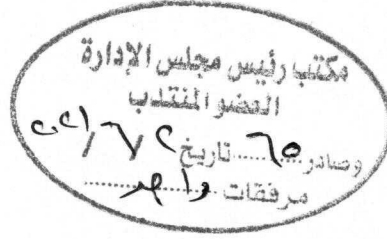 مكتب رئيس مجلس الإدارة
العضو المنتدب
وصادر ٦٥ تاريخ
مرفقات واحد